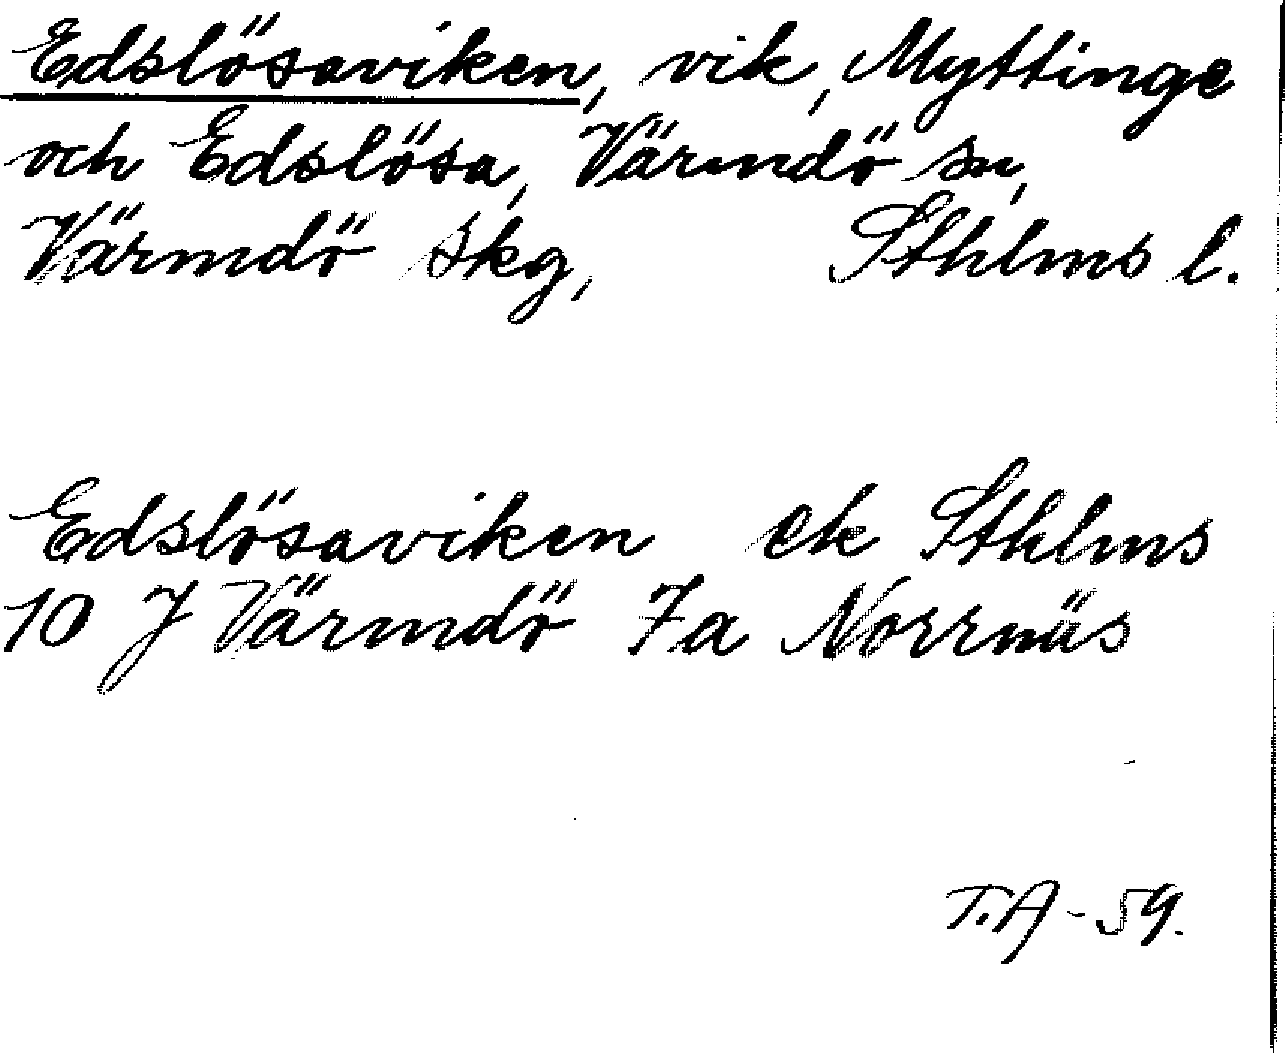 Edslösaviken, vik, Myttinge
och Edslösa, Värmdö sn,
Värmdö skg, Sthlms l.
Edslösaviken ek Sthlms
10 J Värmdö 7a Norrnäs
T.A - 59.